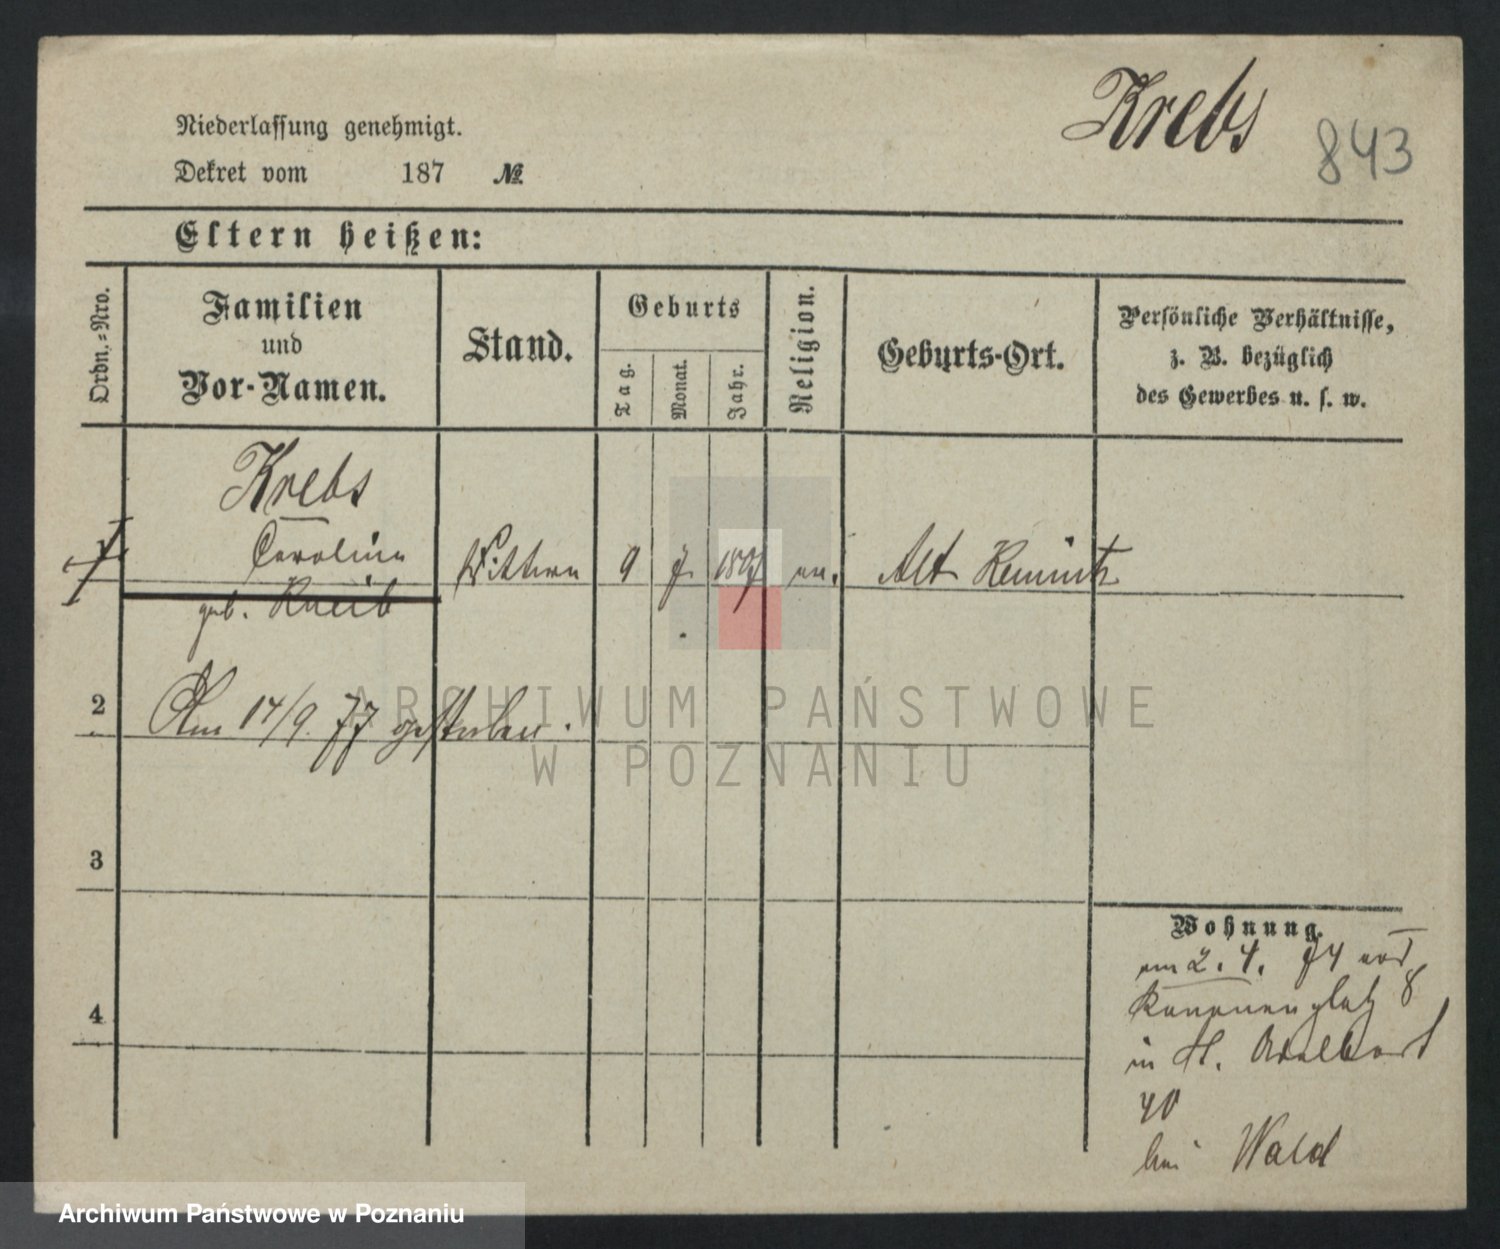 Krebs
843
Niederlassung genehmigt.
Dekret vom 187 №
Eltern heißen:
Ordn.-Nro.
Familien
und
Vor-Namen.
Stand.
Geburts
Tag.
Monat.
Jahr.
Religion.
Geburts-Ort.
Persönliche Verhältnisse,
z. B. bezüglich
des Gewerbes u. s. w.
Krebs
Caroline
geb. Kneib
1
Wittwe
9
7.
1807
ev.
Alt Kemnitz
2
Am 14/9. 77 gestorben.
3
4
Wohnung.
am 2. 4. 74 von
Kanonenplatz 8
in St. Adalbert
40
bei Wald
ARCHIWUM PAŃSTWOWE
W POZNANIU
Archiwum Państwowe w Poznaniu